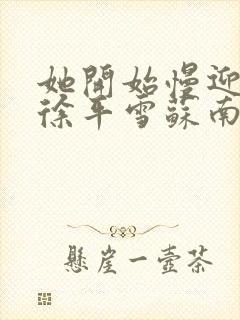 她開始慢迎
徐平雪蘇南
懸崖一壺茶